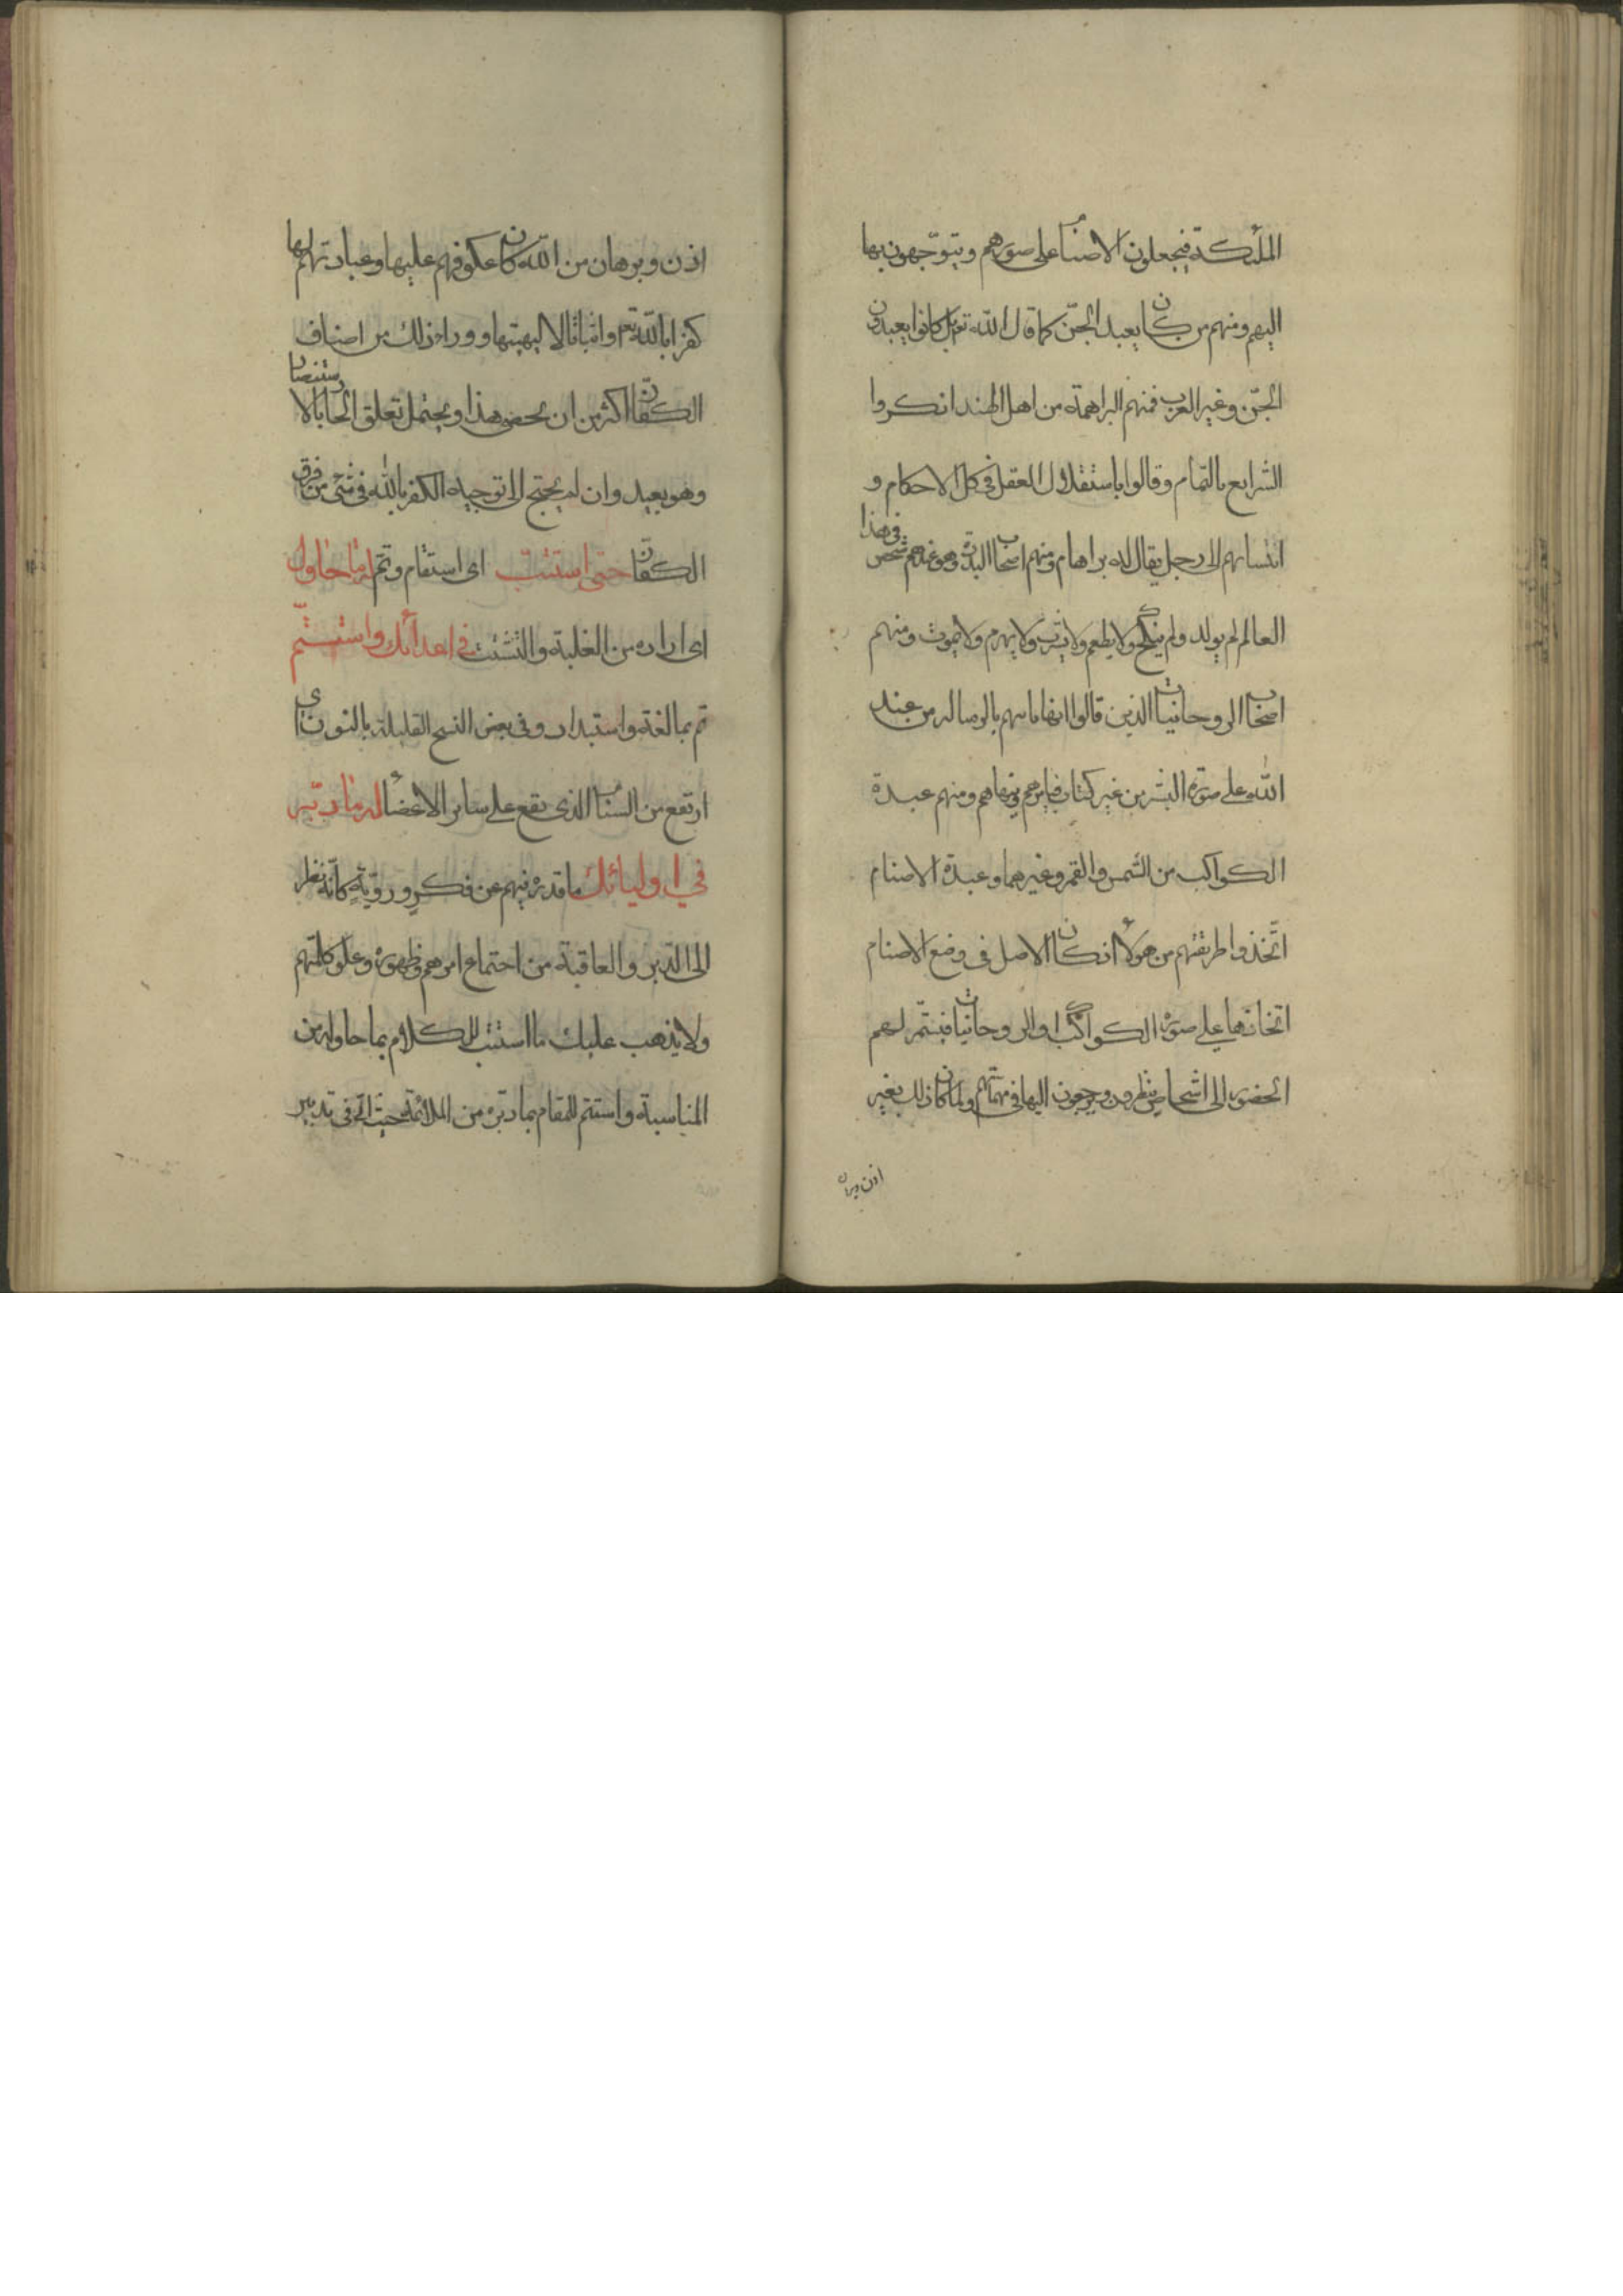 الملئكة فيجعلون الاصنام على صورهم ويتوجّهون بها
اليهم ومنهم من كان يعبد الجنّ كما قال اللّه تعم بل كانوا يعبدون
الجنّ وغير العرب فمنهم البراهمة من اهل الهند انكروا
الشرايع بالتمام وقالوا باستقلال العقل فى كل الاحكام و
انتسابهم الى رجل يقال له براهام ومنهم اصحاب البددة وهو عندهم شخص فى هذا
العالم لم يولد ولم ينكح ولا يطعم ولا يشرب ولا يهرم ولا يموت ومنهم
اصحاب الروحانيات الذين قالوا بالرسالة من عند
اللّه على صورة البشر من غير كتاب فيامرهم وينهاهم ومنهم عبدة
الكواكب من الشمس والقمر وغيرهما وعبدة الاصنام
اتّخذوا طريقتهم من هؤلاء اذ كان الاصل فى وضع الاصنام
اتخاذها على صورة الكواكب او الروحانيات فيستمر لهم
الحضور الى اشخاص ينظرون ويرجعون اليها فى مهمّاتهم ولما كان ذلك بغير
اذن وبرهان
اذن وبرهان من اللّه كان عكوفهم عليها وعبادتهم لها
كفرا باللّه تعم واثباتا لالهيتها ووراء ذلك من اصناف
الكفّار اكثر من ان يحصى هذا ويحتمل تعلق الحا بالاستنصار
وهو بعيد وان لم يحتج الى توجيه الكفر باللّه فى شىء من فرق
الكفّار حتى استتبّ اى استقام وتمّ له ما حاول
اى اراده من الغلبة والتشتت فى اعدائك واستتمّ
تم بمالغة واستبداد وفى بعض النسخ القليلة بالنون اى
ارتفع من السنام الذى يقع على ساير الاعضاء له ما دبّر
في اوليائك ما قدره فيهم عن فكر ورويّة كانّه نظر
الى الدبر والعاقبة من اجتماع امرهم وظهوره وعلو كلمتهم
ولا يذهب عليك ما استتب للكلام بما حاوله من
المناسبة واستتم للمقام بما دبّره من الملائمة حيث اتى فى تدبير